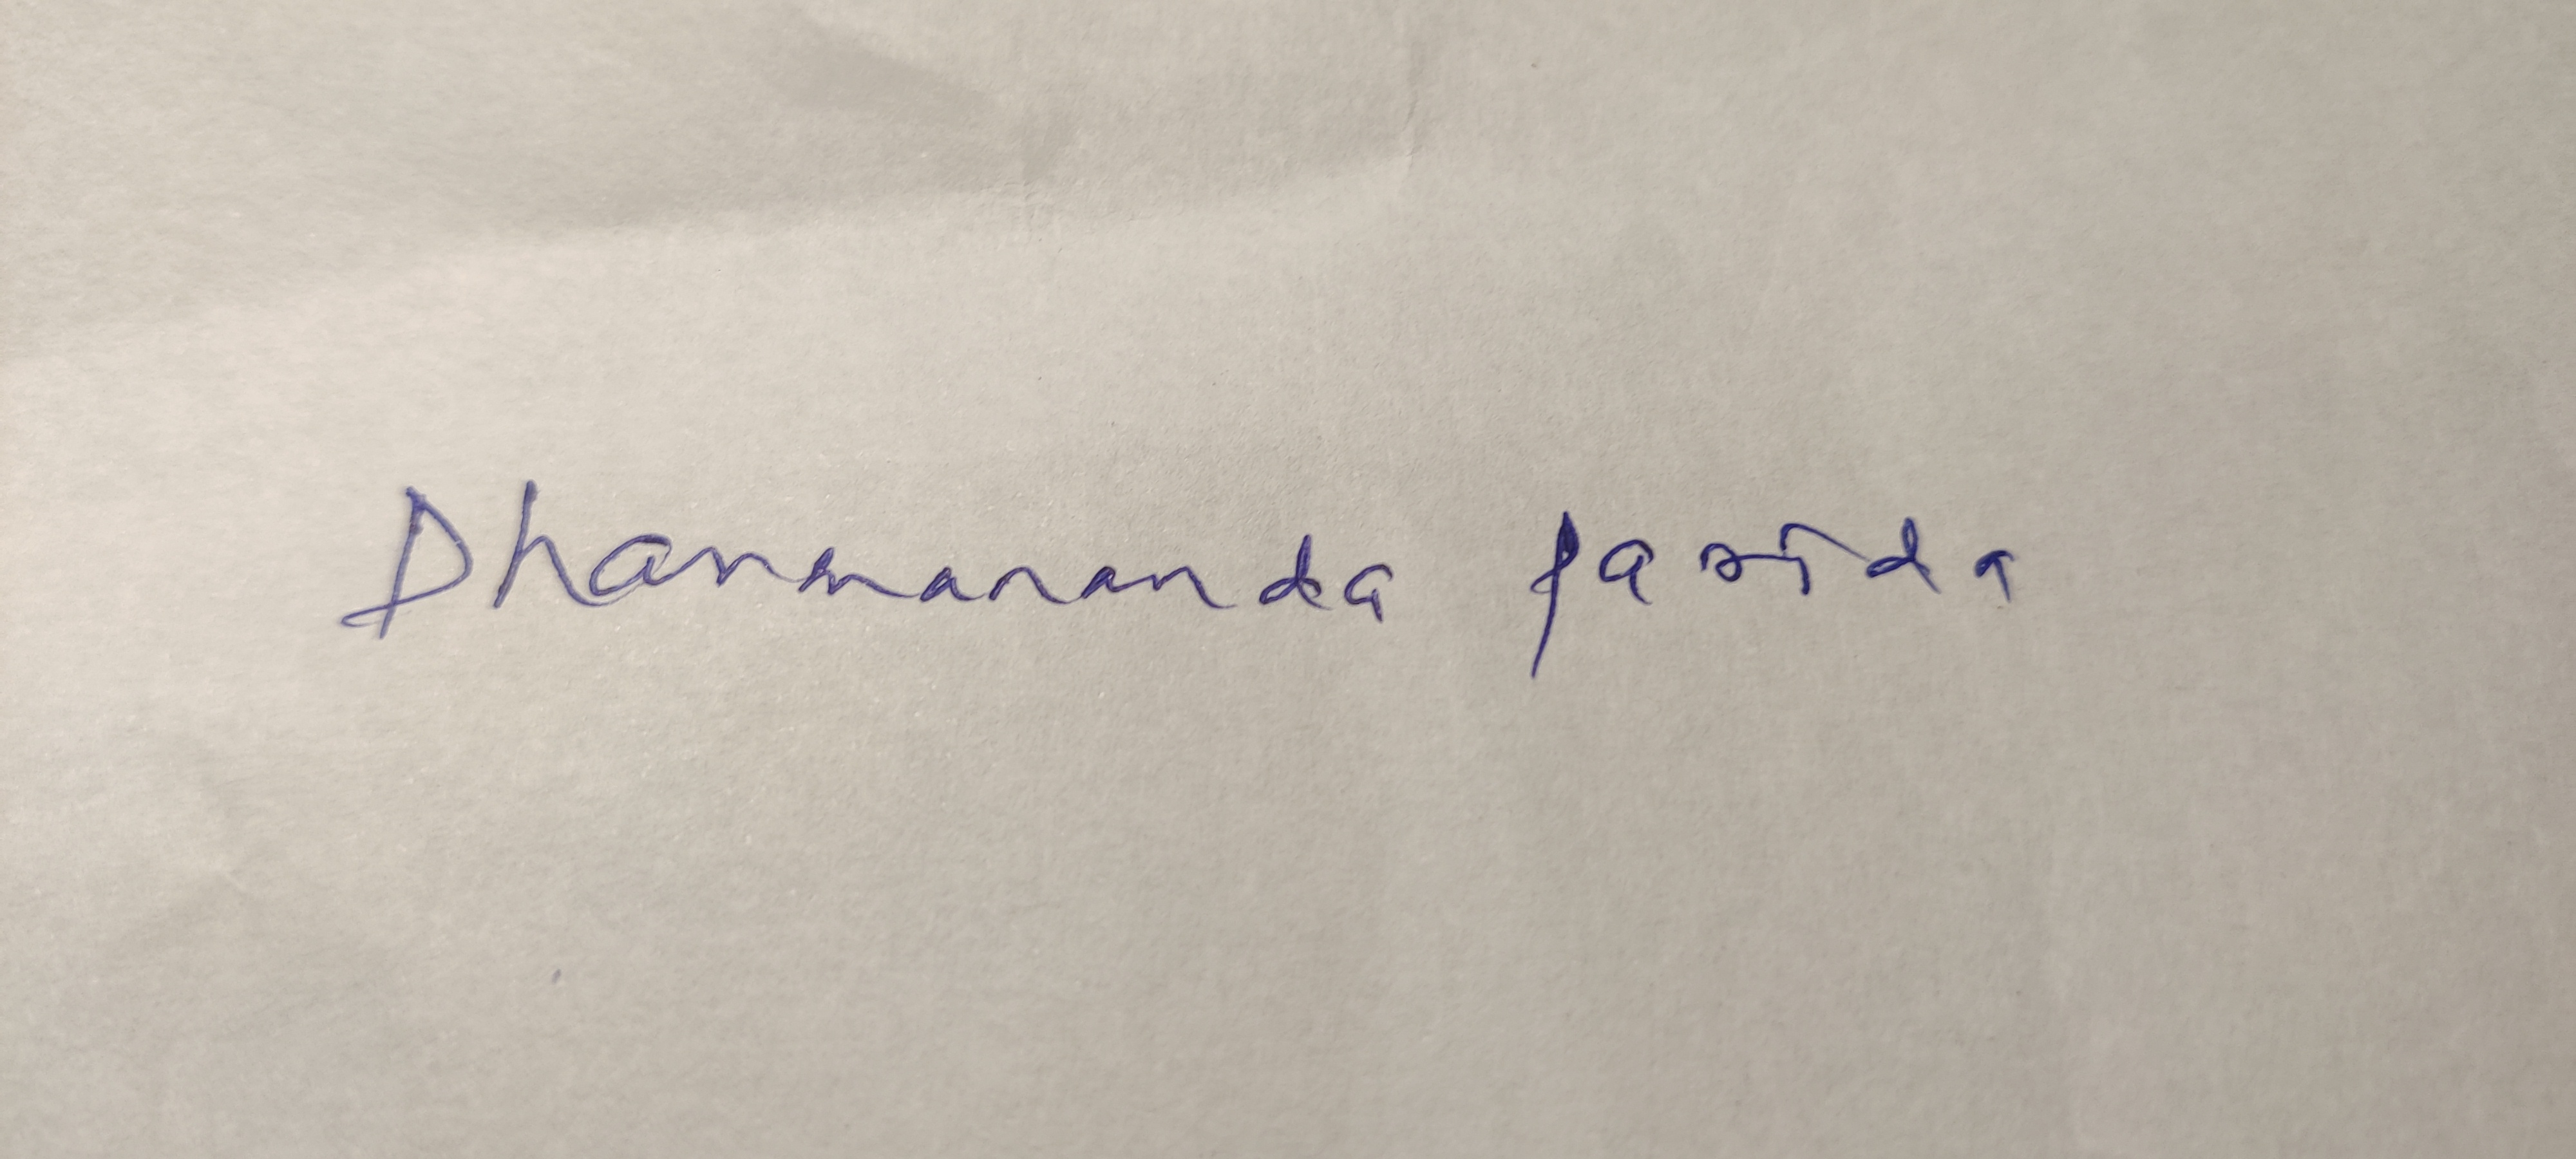 Dharmananda parida